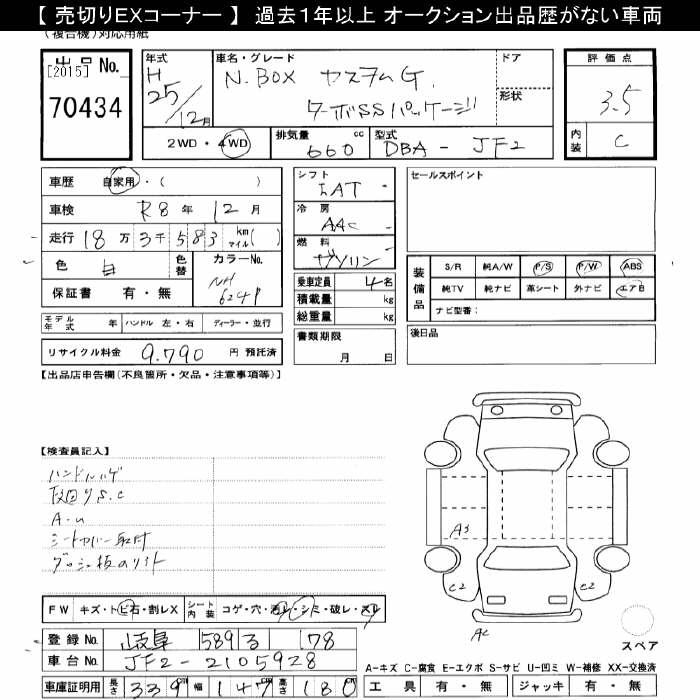 【 売切りEXコーナー 】 過去1年以上 オークション出品歴がない車両
(複合機)対応用紙
出品No.
[2015]
70434
年式
H
25/12月
車名・グレード
N.BOX カスタムG.
ターボSSパッケージ
ドア
形状
評価点
3.5
内装
C
2WD・4WD
排気量
660
cc
型式
DBA - JF2
車歴 自家用・( )
車検 R8年 12月
走行 18万3千583 km マイル( )
色 白
色替
カラーNo.
NH
624P
保証書 有・無
モデル年式 年 ハンドル 左・右 ディーラー・並行
リサイクル料金 9.790 円 預託済
シフト
IAT
冷房
AAC
燃料
ガソリン
乗車定員 4名
積載量 kg
総重量 kg
書類期限
月 日
セールスポイント
装備品
S/R 純A/W P/S P/W ABS
純TV 純ナビ 革シート 外ナビ エアB
ナビ型番:
後日品
【出品店申告欄(不良箇所・欠品・注意事項等)】
【検査員記入】
ハンドルハゲ
下回りS.C
A-u
シートカバー取付
A3
C2
C2
スペア
FW キズ・トビ石・割レX
シート内装 コゲ・穴・汚レ・シミ・破レ・スレ
登録No. 岐阜 589 る 178
車台No. JF2-2105928
車庫証明用 長さ 339 幅 147 高さ 180
A-キズ C-腐食 E-エクボ S-サビ U-凹ミ W-補修 XX-交換済
工具 有・無 ジャッキ 有・無